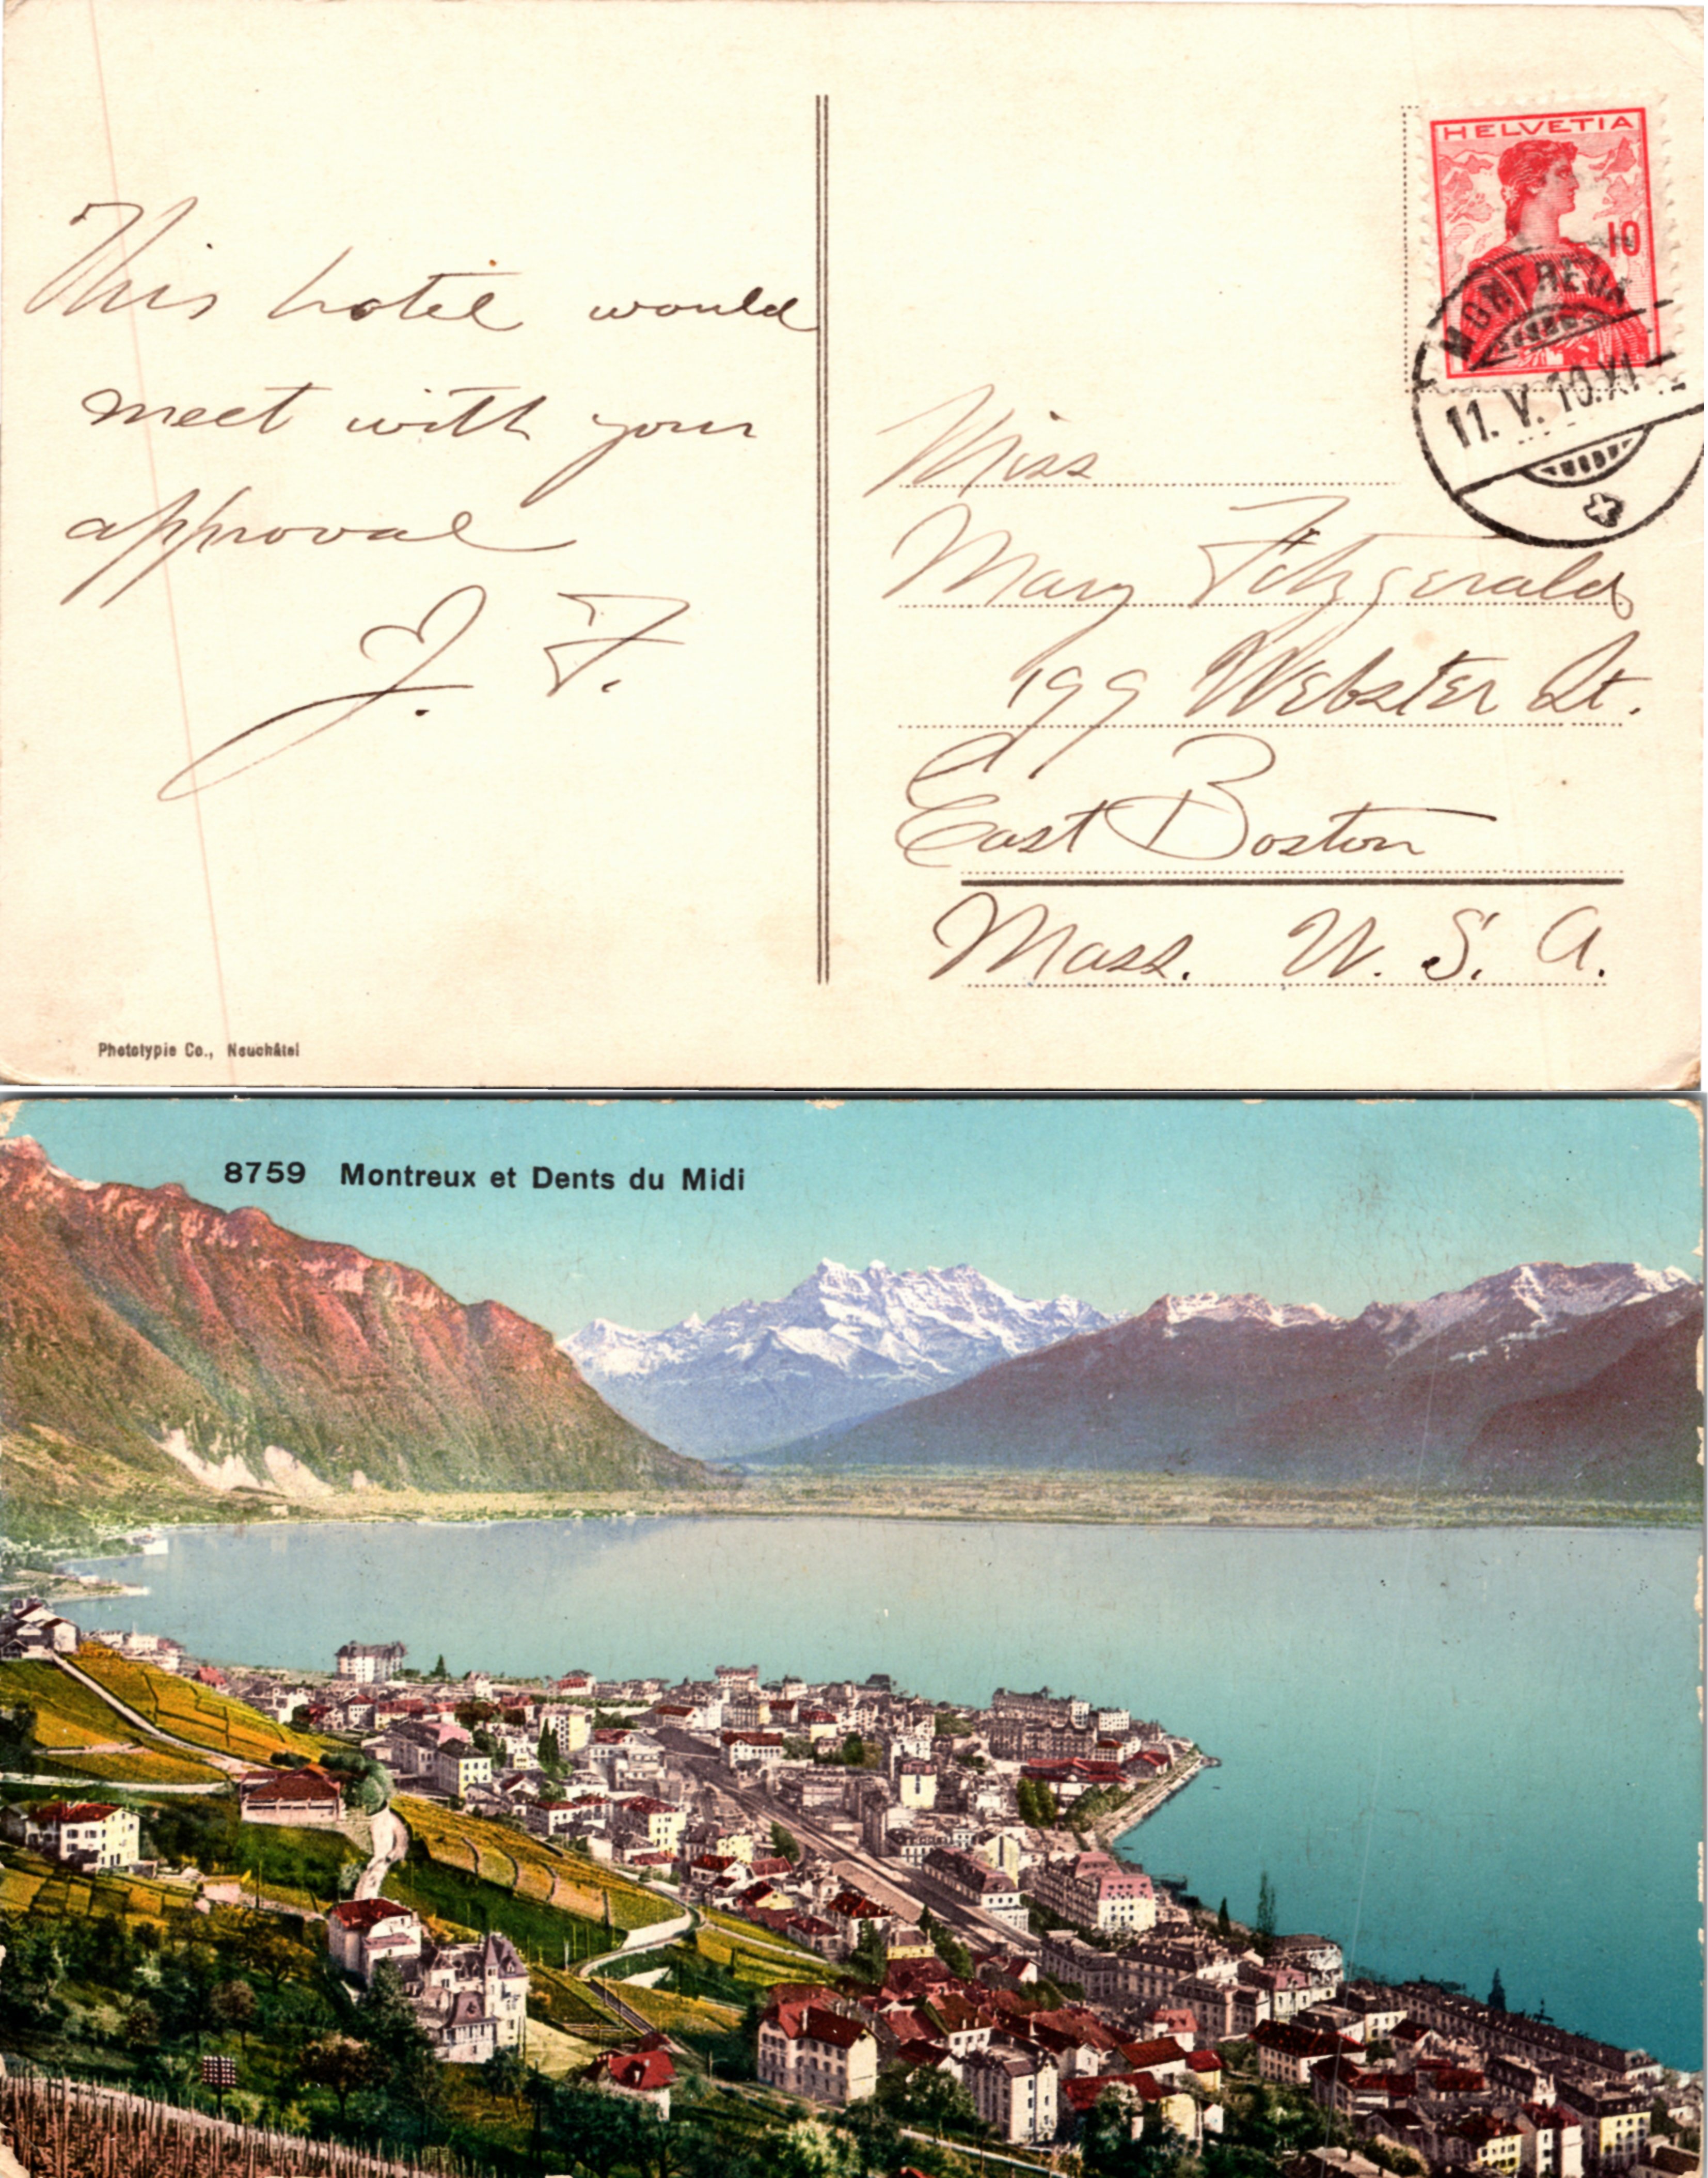 This hotel would
meet with your
approval
J. F.
HELVETIA
10
MONTREUX
11. V. 10. XI
Miss
Mary Fitzgerald
199 Webster St.
East Boston
Mass. U. S. A.
Phototypie Co., Neuchâtel
8759 Montreux et Dents du Midi